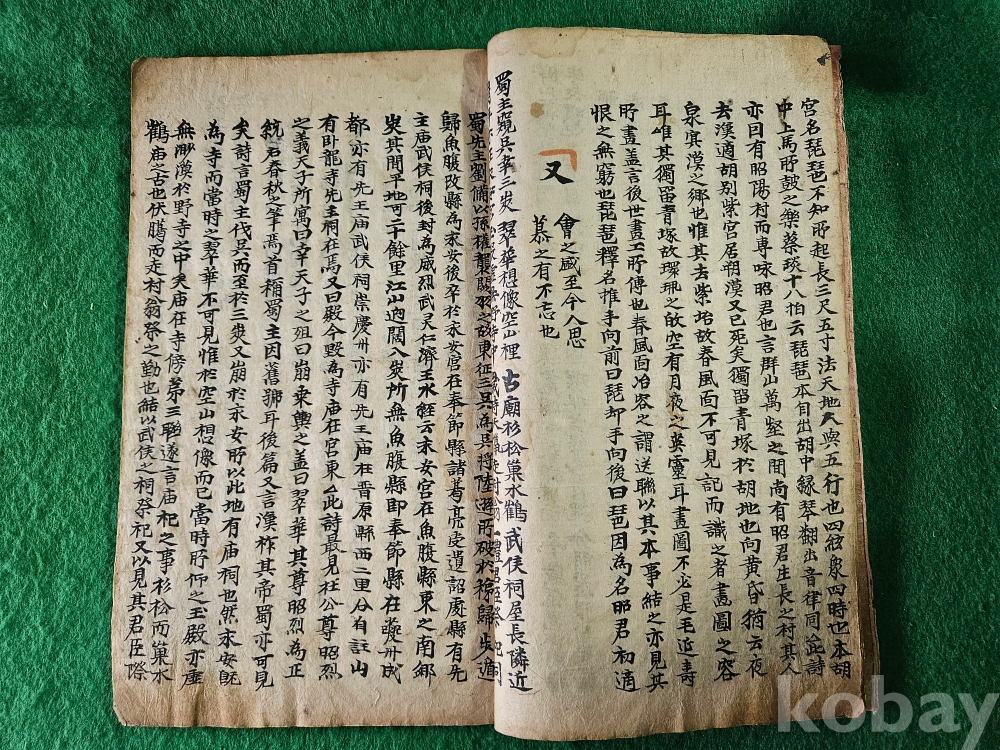 宮名琵琶不知所起長三尺五寸法天地人與五行也四絃象四時也本胡
中上馬所鼓之樂蔡琰十八拍云琵琶本自出胡中緣琴翻出音律同此詩
亦曰有昭陽村而專咏昭君也言群山萬壑之間尚有昭君生長之村其人
去漢適胡別紫宮居朔漠又已死矣獨留青塚於胡地也向黃昏猶云夜
泉冥漠之鄉也惟其去紫坮故春風面不可見記而識之者畫圖之容
耳唯其獨留青塚故環珮之皈空有月夜之英靈耳畫圖不必是毛延壽
所畫盖言後世畫工所傳也春風面冶容之謂送聯以其本事結之亦見其
恨之無窮也琵琶釋名推手向前曰琵却手向後曰琶因為名昭君初適
又
會之盛至今人思
慕之有不忘也
蜀主窺吳幸三峽 翠華想像空山裡 古廟杉松巢水鶴 武侯祠屋長隣近
蜀先主劉備以孫權襲關羽之故東征三吳為吳將陸遜所破於秭歸步道
歸魚腹改縣為永安後卒於永安宮在奉節縣諸葛亮受遺詔處縣有先
主廟武侯祠後封為威烈武灵仁濟王水經云永安宮在魚腹縣東之南鄉
峽其間平地可二十餘里江山逈闊入峽所無魚腹縣即奉節縣在夔州成
都亦有先主庙武侯祠崇慶州亦有先主庙在晋原縣西二里公自註山
有卧龍寺先主祠在焉又曰殿今野為寺庙在宮東此詩最見杜公尊昭烈
之義天子所寓曰幸天子之殂曰崩乘輿之盖曰翠華其尊昭烈為正
統君春秋之筆焉首稱蜀主因舊號耳後篇又言漢祚其帝蜀亦可見
矣詩言蜀主伐吳而至於三峽又崩於永安所以此地有庙祠也然永安既
為寺而當時之翠華不可見惟於空山想像而已當時所仰之玉殿亦虛
無渺漠於野寺之中矣庙在寺傍第三聯遂言庙祀之事杉松而巢水
鶴庙之古也伏臘而走村翁祭之勤也結以武侯之祠祭祀又以見其君臣際
kobay